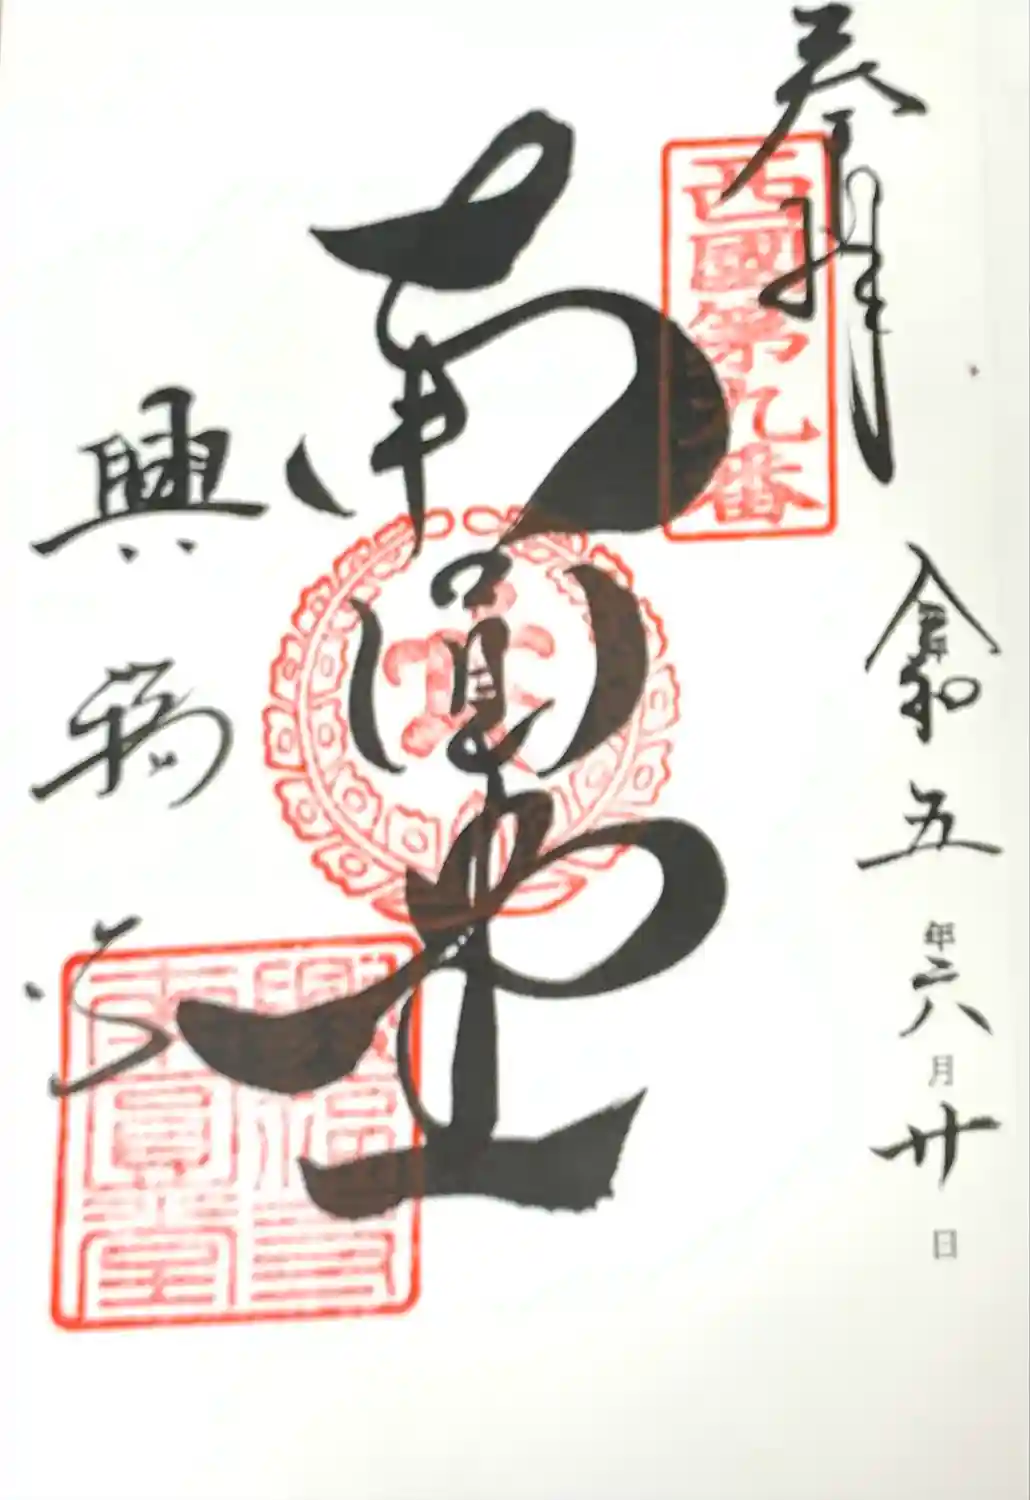 奉拝
西國第九番
令和五年六月廿日
南圓堂
興福寺
興福寺
南圓堂